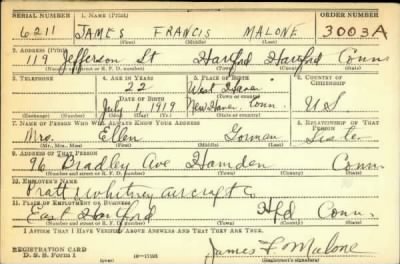 SERIAL NUMBER 1. NAME (Print) ORDER NUMBER
6211 JAMES FRANCIS MALONE 3003A
(First) (Middle) (Last)
2. ADDRESS (Print)
119 Jefferson St Hartford Hartford Conn
(Number and street or R. F. D. number) (Town) (County) (State)
3. TELEPHONE 4. AGE IN YEARS 5. PLACE OF BIRTH 6. COUNTRY OF CITIZENSHIP
22 West Haven
DATE OF BIRTH (Town or county)
July 1919 New Haven, Conn. U S
(Exchange) (Number) (Mo.) (Day) (Yr.) (State or country)
7. NAME OF PERSON WHO WILL ALWAYS KNOW YOUR ADDRESS 8. RELATIONSHIP OF THAT PERSON
Mrs. Ellen Gorman Sister
(Mr., Mrs., Miss) (First) (Middle) (Last)
9. ADDRESS OF THAT PERSON
96 Bradley Ave Hamden Conn
(Number and street or R. F. D. number) (Town) (County) (State)
10. EMPLOYER'S NAME
Pratt & Whitney aircraft Co
11. PLACE OF EMPLOYMENT OR BUSINESS
East Hartford Hfd Conn.
(Number and street or R. F. D. number) (Town) (County) (State)
I AFFIRM THAT I HAVE VERIFIED ABOVE ANSWERS AND THAT THEY ARE TRUE.
REGISTRATION CARD
D. S. S. Form 1 James F. Malone